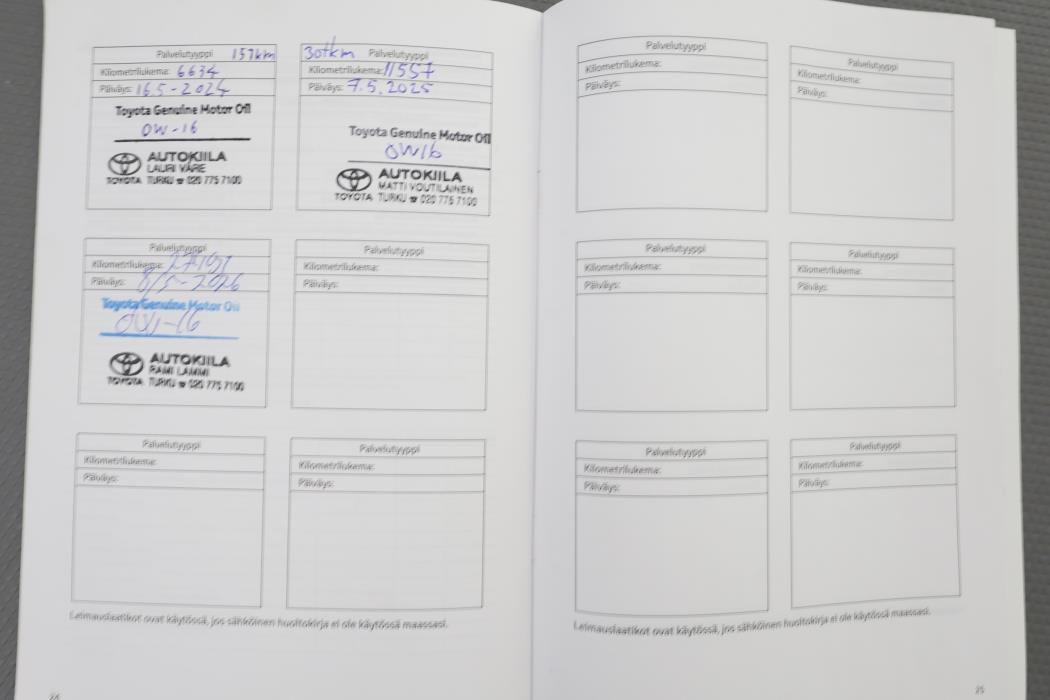 Palvelutyyppi 15Tkm
Kilometrilukema: 6634
Päiväys: 16.5-2024
Toyota Genuine Motor Oil
0W-16
AUTOKIILA
LAURI VÄRE
TOYOTA TURKU ☎ 020 775 7100
30tkm Palvelutyyppi
Kilometrilukema: 11557
Päiväys: 7.5.2025
Toyota Genuine Motor Oil
0W16
AUTOKIILA
MATTI VOUTILAINEN
TOYOTA TURKU ☎ 020 775 7100
Palvelutyyppi
Kilometrilukema:
Päiväys: 8/5-2026
Toyota Genuine Motor Oil
0W-16
AUTOKIILA
RAMI LAMMI
TOYOTA TURKU ☎ 020 775 7100
Palvelutyyppi
Kilometrilukema:
Päiväys:
Palvelutyyppi
Kilometrilukema:
Päiväys:
Palvelutyyppi
Kilometrilukema:
Päiväys:
Leimauslaatikot ovat käytössä, jos sähköinen huoltokirja ei ole käytössä maassasi.
24
Palvelutyyppi
Kilometrilukema:
Päiväys:
Palvelutyyppi
Kilometrilukema:
Päiväys:
Palvelutyyppi
Kilometrilukema:
Päiväys:
Palvelutyyppi
Kilometrilukema:
Päiväys:
Palvelutyyppi
Kilometrilukema:
Päiväys:
Palvelutyyppi
Kilometrilukema:
Päiväys:
Leimauslaatikot ovat käytössä, jos sähköinen huoltokirja ei ole käytössä maassasi.
25